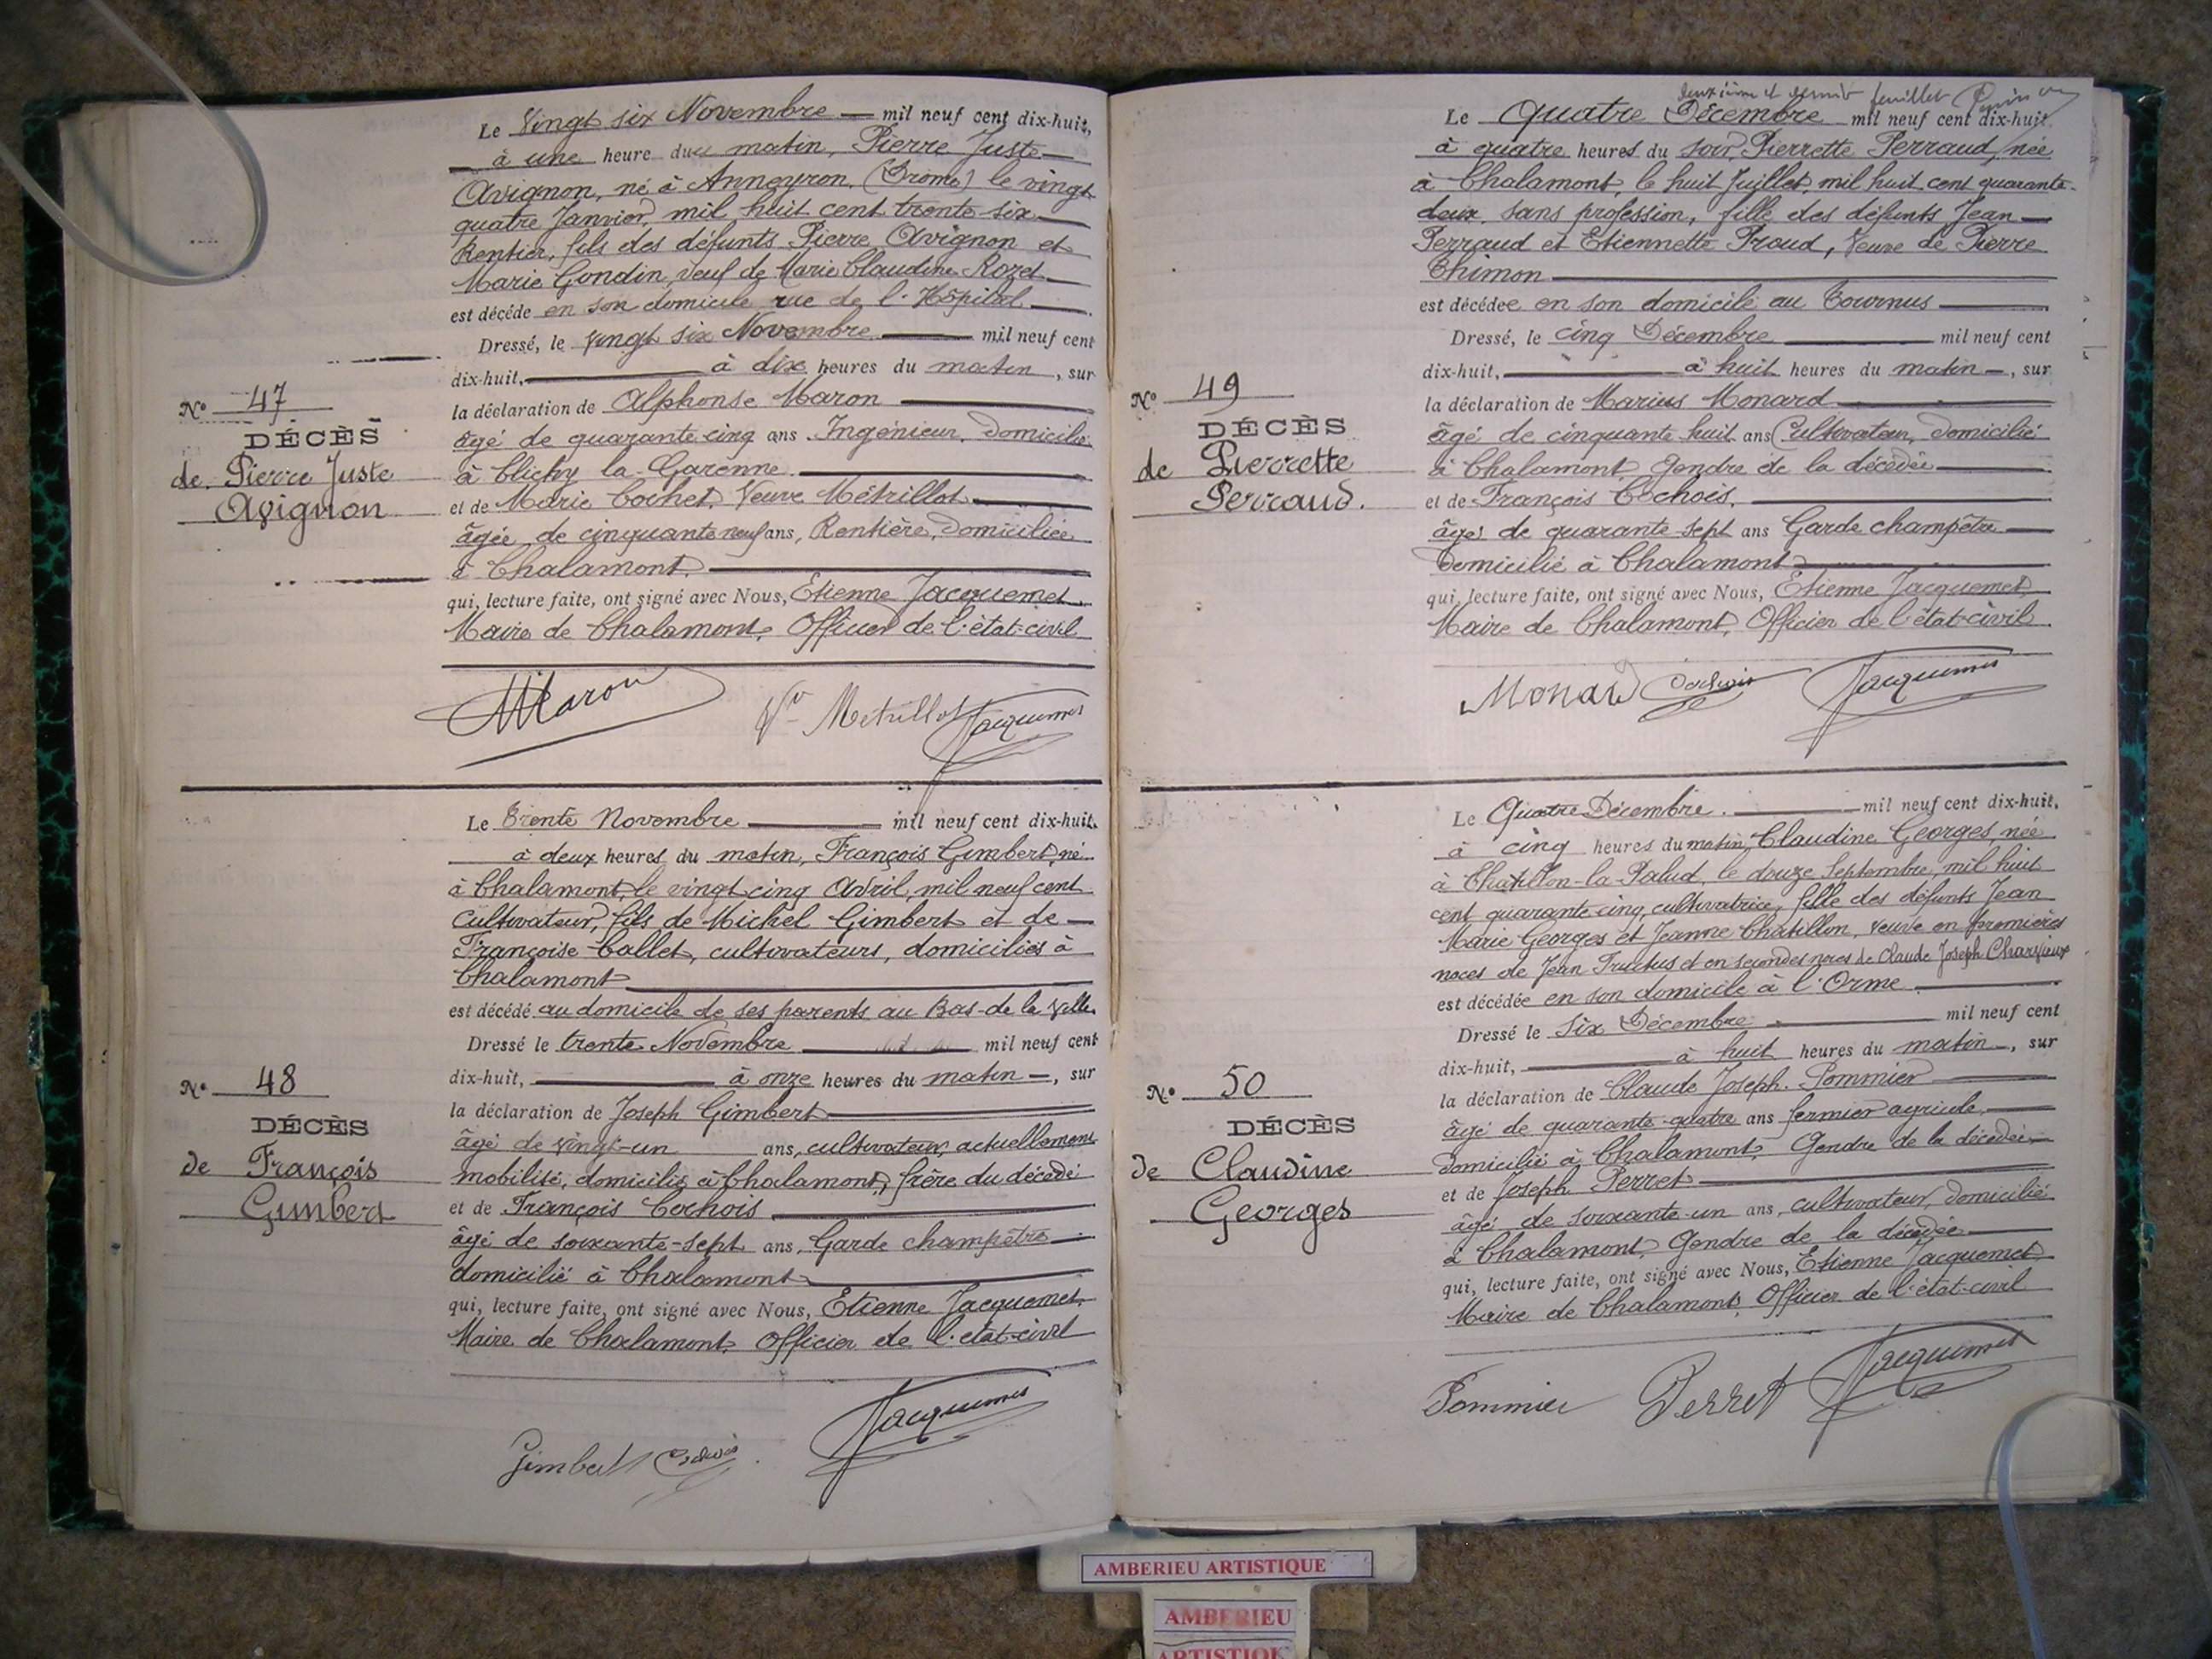 Le Vingt six Novembre mil neuf cent dix-huit,
à une heure du matin, Pierre Juste
Avignon, né à Anneyron (Drome) le vingt
quatre Janvier, mil huit cent trente-six
Rentier, fils des défunts Pierre Avignon et
Marie Gondin, Veuf de Marie Claudine Rozet
est décédé en son domicile rue de l'Hôpital
Dressé, le Vingt six Novembre mil neuf cent
dix-huit, à dix heures du matin, sur
la déclaration de Alphonse Maron
âgé de quarante cinq ans Ingénieur, domicilié
à Clichy la Garenne
et de Marie Cochet, Veuve Métrillot
âgée de cinquante neuf ans, Rentière, domiciliée
à Chalamont
qui, lecture faite, ont signé avec Nous, Etienne Jacquemet,
Maire de Chalamont, Officier de l'état-civil
Maron Vve Metrillot Jacquemet
No 47
DÉCÈS
de Pierre Juste
Avignon
Le Trente Novembre mil neuf cent dix-huit,
à deux heures du matin, François Gimbert, né
à Chalamont, le vingt cinq Avril, mil neuf cent
Cultivateur, fils de Michel Gimbert et de
Françoise Callet, cultivateurs, domiciliés à
Chalamont
est décédé au domicile de ses parents au Bas-de la Ville.
Dressé le trente Novembre mil neuf cent
dix-huit, à onze heures du matin, sur
la déclaration de Joseph Gimbert
âgé de vingt-un ans, cultivateur, actuellement
mobilisé, domicilié à Chalamont, frère du décédé
et de François Cochois
âgé de soixante-sept ans, Garde champêtre
domicilié à Chalamont
qui, lecture faite, ont signé avec Nous, Etienne Jacquemet,
Maire de Chalamont, Officier de l'état-civil
Gimbert Cochois Jacquemet
No 48
DÉCÈS
de François
Gimbert
deuxième et dernier feuillet
Le Quatre Décembre mil neuf cent dix-huit
à quatre heures du soir, Pierrette Perraud, née
à Chalamont, le huit Juillet, mil huit cent quarante-
deux, sans profession, fille des défunts Jean
Perraud et Etiennette Proud, Veuve de Pierre
Thimon
est décédée en son domicile au Tournus
Dressé, le cinq Décembre mil neuf cent
dix-huit, à huit heures du matin, sur
la déclaration de Marius Monard
âgé de cinquante huit ans Cultivateur, domicilié
à Chalamont, Gendre de la décédée
et de François Cochois
âgé de quarante sept ans Garde champêtre
domicilié à Chalamont
qui, lecture faite, ont signé avec Nous, Etienne Jacquemet,
Maire de Chalamont, Officier de l'état-civil
Monard Cochois Jacquemet
No 49
DÉCÈS
de Pierrette
Perraud.
Le Quatre Décembre mil neuf cent dix-huit,
à cinq heures du matin, Claudine Georges, née
à Chatillon-la-Palud, le douze Septembre, mil huit
cent quarante-cinq, cultivatrice, fille des défunts Jean
Marie Georges et Jeanne Chatillon, veuve en premières
noces de Jean Tructus et en secondes noces de Claude Joseph Charvieux
est décédée en son domicile à l'Orme
Dressé le six Décembre mil neuf cent
dix-huit, à huit heures du matin, sur
la déclaration de Claude Joseph Pommier
âgé de quarante quatre ans fermier agricole
domicilié à Chalamont, Gendre de la décédée
et de Joseph Perret
âgé de soixante-un ans, cultivateur, domicilié
à Chalamont, Gendre de la décédée
qui, lecture faite, ont signé avec Nous, Etienne Jacquemet,
Maire de Chalamont, Officier de l'état-civil
Pommier Perret Jacquemet
No 50
DÉCÈS
de Claudine
Georges
AMBERIEU ARTISTIQUE
AMBERIEU